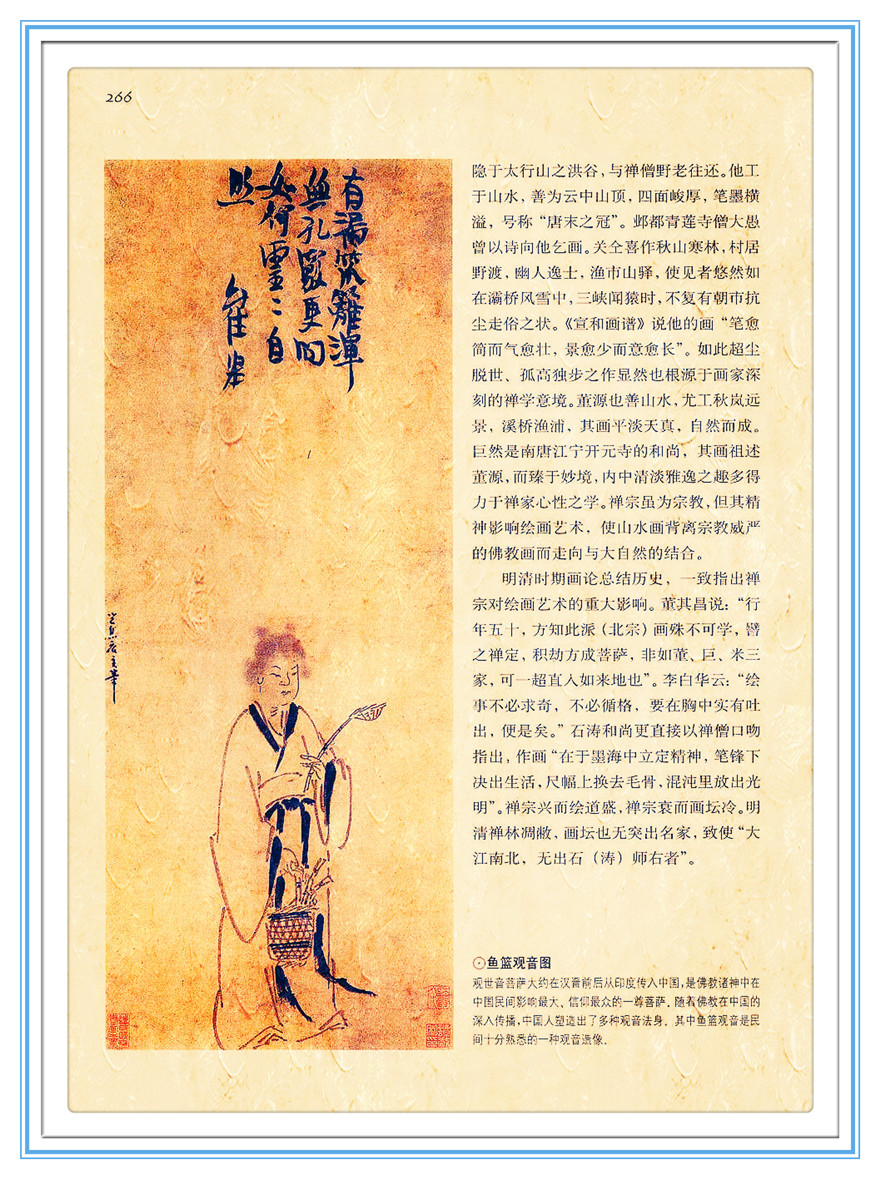 266
有漏笊籬渾
無孔竅更問
如何靈〻自
照
隐于太行山之洪谷，与禅僧野老往还。他工
于山水，善为云中山顶，四面峻厚，笔墨横
溢，号称“唐末之冠”。邺都青莲寺僧大愚
曾以诗向他乞画。关仝喜作秋山寒林，村居
野渡，幽人逸士，渔市山驿，使见者悠然如
在灞桥风雪中，三峡闻猿时，不复有朝市抗
尘走俗之状。《宣和画谱》说他的画“笔愈
简而气愈壮，景愈少而意愈长”。如此超尘
脱世、孤高独步之作显然也根源于画家深
刻的禅学意境。董源也善山水，尤工秋岚远
景，溪桥渔浦，其画平淡天真，自然而成。
巨然是南唐江宁开元寺的和尚，其画祖述
董源，而臻于妙境，内中清淡雅逸之趣多得
力于禅家心性之学。禅宗虽为宗教，但其精
神影响绘画艺术，使山水画背离宗教威严
的佛教画而走向与大自然的结合。
明清时期画论总结历史，一致指出禅
宗对绘画艺术的重大影响。董其昌说：“行
年五十，方知此派（北宗）画殊不可学，譬
之禅定，积劫方成菩萨，非如董、巨、米三
家，可一超直入如来地也”。李白华云：“绘
事不必求奇，不必循格，要在胸中实有吐
出，便是矣。”石涛和尚更直接以禅僧口吻
指出，作画“在于墨海中立定精神，笔锋下
决出生活，尺幅上换去毛骨，混沌里放出光
明”。禅宗兴而绘道盛，禅宗衰而画坛冷。明
清禅林凋敝，画坛也无突出名家，致使“大
江南北，无出石（涛）师右者”。
鱼篮观音图
观世音菩萨大约在汉晋前后从印度传入中国，是佛教诸神中在
中国民间影响最大、信仰最众的一尊菩萨。随着佛教在中国的
深入传播，中国人塑造出了多种观音法身。其中鱼篮观音是民
间十分熟悉的一种观音造像。